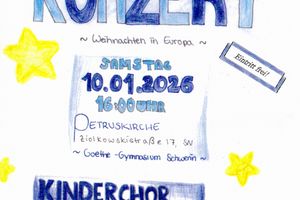 KONZERT
~ Weihnachten in Europa ~
Eintritt frei!
SAMSTAG
10.01.2026
16:00 UHR
PETRUSKIRCHE
Ziolkowskistraße 17, SN
~ Goethe-Gymnasium Schwerin ~
KINDERCHOR